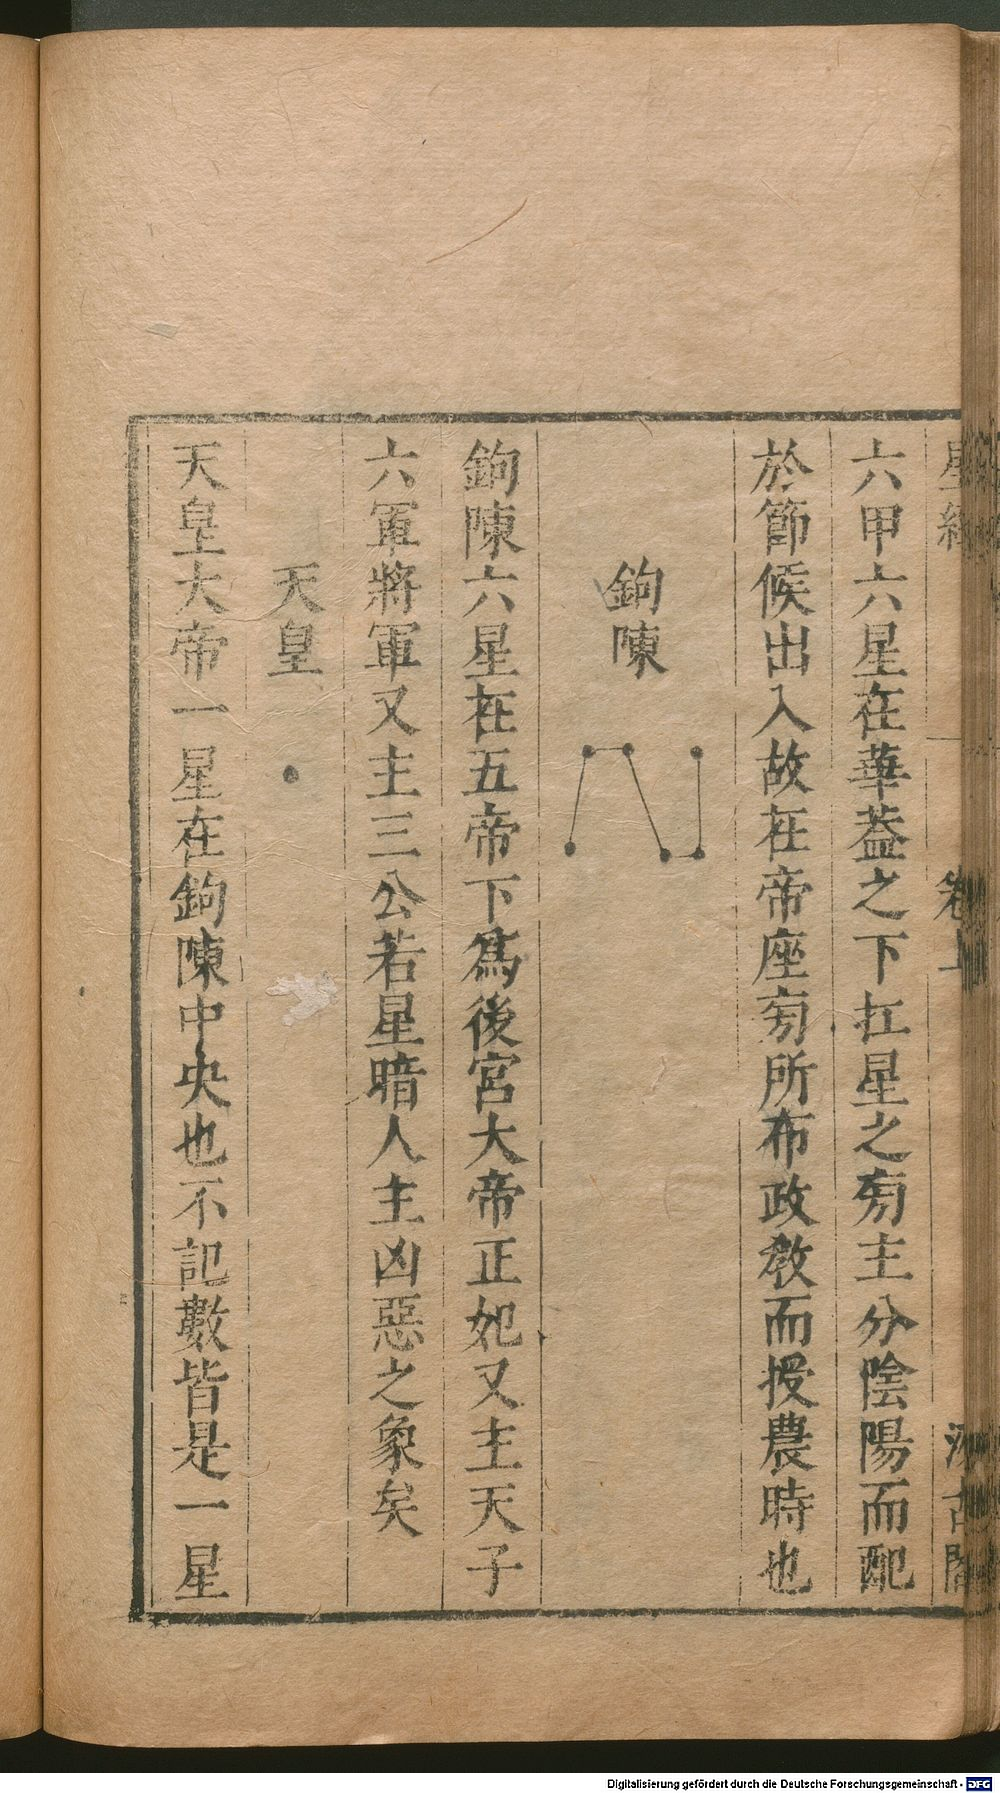 星經
卷上
汲古閣
六甲六星在華葢之下扛星之旁主分陰陽而配
於節候出入故在帝座旁所布政教而授農時也
鉤陳
鉤陳六星在五帝下爲後宮大帝正妃又主天子
六軍將軍又主三公若星暗人主凶惡之象矣
天皇
天皇大帝一星在鉤陳中央也不記數皆是一星
Digitalisierung gefördert durch die Deutsche Forschungsgemeinschaft - DFG